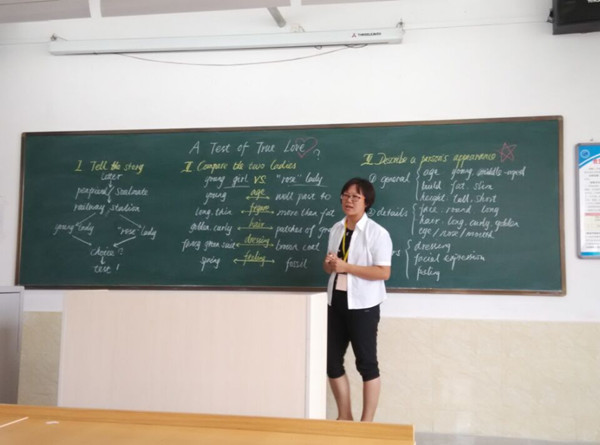 A Test of True Love ?
I Tell the story
later
penfriend soulmate
railway station
young lady "rose" lady
choice?
test!
II Compare the two ladies
young girl VS. "rose" lady
young age well past 40
long, thin figure more than fat
golden curly hair patches of
green suit dressing brown coat
spring feeling fossil
III Describe a person's appearance
① general
age young, middle-aged
build fat, slim
height tall, short
② details
face, round long
hair, long, curly, golden
eye / nose / mouth
dressing
facial expression
feeling